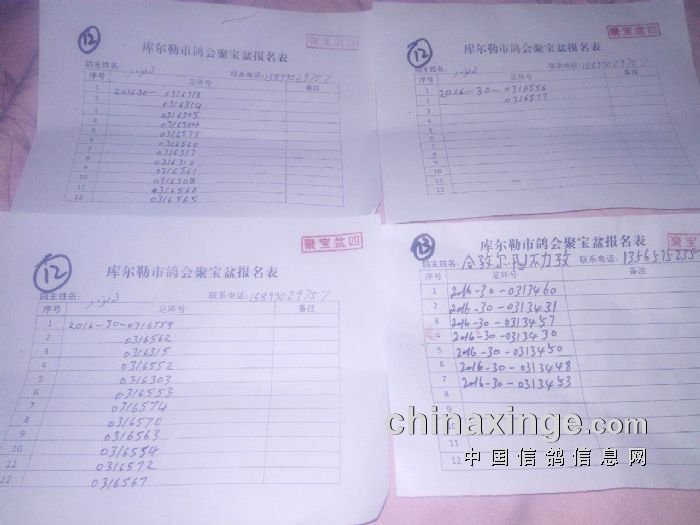 12
聚宝盆四
库尔勒市鸽会聚宝盆报名表
鸽主姓名: 联系电话: 13899029757
序号 足环号 备注
1 201630- 0316318
2 0316314
3 0316305
4 0316304
5 0316575
6 0316560
7 0316317
8 0316310
9 0316561
10 0316308
11 0316568
12 0316565
12
聚宝盆四
库尔勒市鸽会聚宝盆报名表
鸽主姓名: 联系电话: 13899029757
序号 足环号 备注
1 2016-30-0316556
2 0316577
3
4
5
6
7
8
9
10
11
12
12
聚宝盆四
库尔勒市鸽会聚宝盆报名表
鸽主姓名: 联系电话: 13899029757
序号 足环号 备注
1 2016-30-0316559
2 0316562
3 0316315
4 0316552
5 0316303
6 0316553
7 0316574
8 0316570
9 0316563
10 0316554
11 0316572
12 0316567
13
聚宝盆
库尔勒市鸽会聚宝盆报名表
鸽主姓名: 联系电话: 1356575235
序号 足环号 备注
1 2016-30-0313460
2 2016-30-0313431
3 2016-30-0313457
4 2016-30-0313430
5 2016-30-0313450
6 2016-30-0313448
7 2016-30-0313453
12
chinaxinge.com
中国信鸽信息网